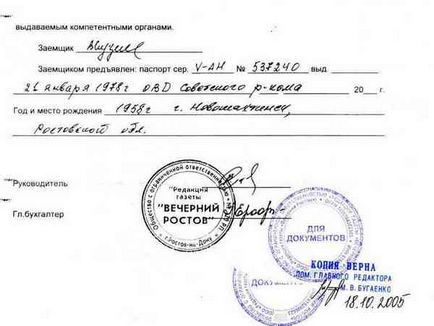 выдаваемым компетентными органами.
Заемщик
Заемщиком предъявлен: паспорт сер. V-АН № 537240 выд.
26 января 1978г ОВД Советского р-кома 20 г.
Год и место рождения 1958г г. Новошахтинск,
Ростовской обл.
Руководитель
Гл.бухгалтер
Общество с ограниченной ответственностью
"Редакция
газеты
"ВЕЧЕРНИЙ
РОСТОВ"
г.Ростов-на-Дону
ДЛЯ
ДОКУМЕНТОВ
КОПИЯ ВЕРНА
ПОМ. ГЛАВНОГО РЕДАКТОРА
М.В. БУГАЕНКО
18.10.2005